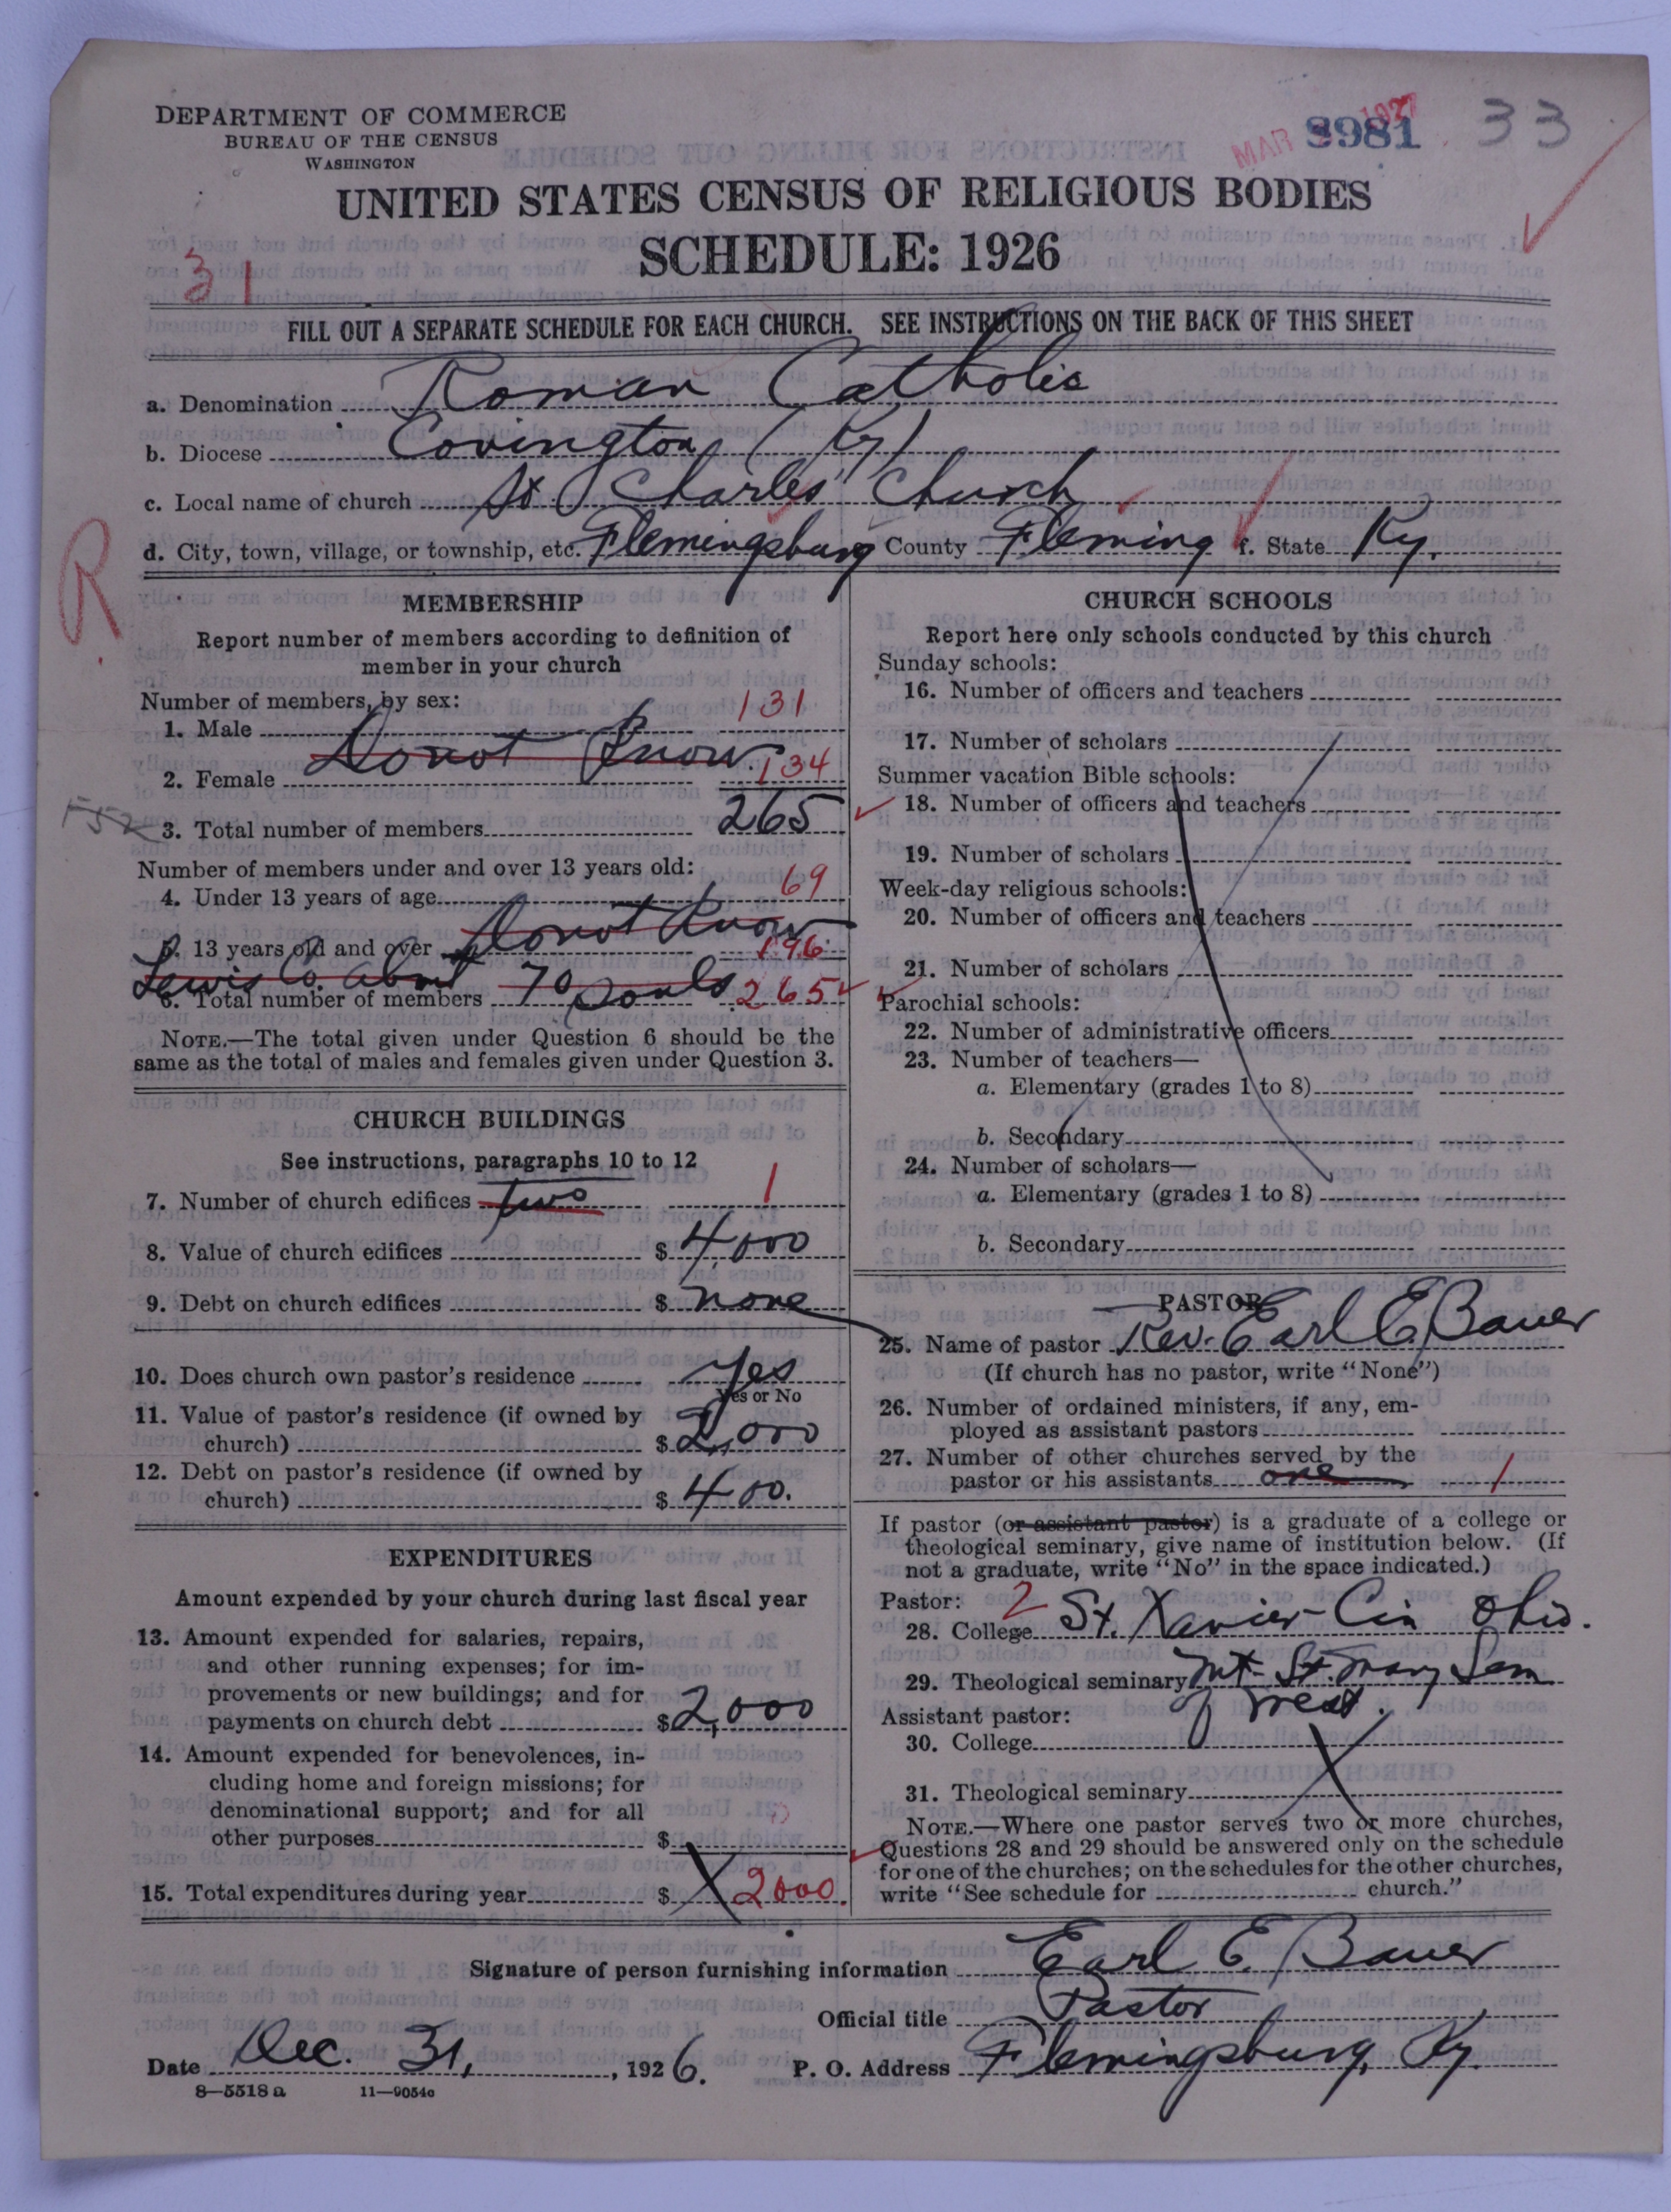 DEPARTMENT OF COMMERCE
BUREAU OF THE CENSUS
WASHINGTON
MAR 1927
8981 33
UNITED STATES CENSUS OF RELIGIOUS BODIES
SCHEDULE: 1926
31
FILL OUT A SEPARATE SCHEDULE FOR EACH CHURCH. SEE INSTRUCTIONS ON THE BACK OF THIS SHEET
a. Denomination Roman Catholic
b. Diocese Covington (Ky)
c. Local name of church St. Charles' Church
d. City, town, village, or township, etc. Flemingsburg County Fleming f. State Ky.
R
MEMBERSHIP
Report number of members according to definition of
member in your church
Number of members, by sex:
1. Male 131
Do not Know.
2. Female 134
3. Total number of members 265
Number of members under and over 13 years old:
4. Under 13 years of age 69
5. 13 years old and over Do not Know 196
Lewis Co. about 70 souls
6. Total number of members 265
NOTE.—The total given under Question 6 should be the
same as the total of males and females given under Question 3.
CHURCH BUILDINGS
See instructions, paragraphs 10 to 12
7. Number of church edifices two 1
8. Value of church edifices $ 4,000
9. Debt on church edifices $ none
10. Does church own pastor's residence Yes
Yes or No
11. Value of pastor's residence (if owned by
church) $ 2,000
12. Debt on pastor's residence (if owned by
church) $ 400.
EXPENDITURES
Amount expended by your church during last fiscal year
13. Amount expended for salaries, repairs,
and other running expenses; for im-
provements or new buildings; and for
payments on church debt $ 2,000
14. Amount expended for benevolences, in-
cluding home and foreign missions; for
denominational support; and for all
other purposes $ 0
15. Total expenditures during year $ 2000.
CHURCH SCHOOLS
Report here only schools conducted by this church
Sunday schools:
16. Number of officers and teachers
17. Number of scholars
Summer vacation Bible schools:
18. Number of officers and teachers
19. Number of scholars
Week-day religious schools:
20. Number of officers and teachers
21. Number of scholars
Parochial schools:
22. Number of administrative officers
23. Number of teachers—
a. Elementary (grades 1 to 8)
b. Secondary
24. Number of scholars—
a. Elementary (grades 1 to 8)
b. Secondary
PASTOR
25. Name of pastor Rev. Earl E. Bauer
(If church has no pastor, write "None")
26. Number of ordained ministers, if any, em-
ployed as assistant pastors
27. Number of other churches served by the
pastor or his assistants one 1
If pastor (or assistant pastor) is a graduate of a college or
theological seminary, give name of institution below. (If
not a graduate, write "No" in the space indicated.)
Pastor: 2
28. College St. Xavier- Cin Ohio.
29. Theological seminary Mt. St. Mary Sem
of West.
Assistant pastor:
30. College
31. Theological seminary
NOTE.—Where one pastor serves two or more churches,
Questions 28 and 29 should be answered only on the schedule
for one of the churches; on the schedules for the other churches,
write "See schedule for church."
Signature of person furnishing information Earl E. Bauer
Official title Pastor
Date Dec. 31, 1926. P. O. Address Flemingsburg, Ky.
8—5518 a 11—9054c